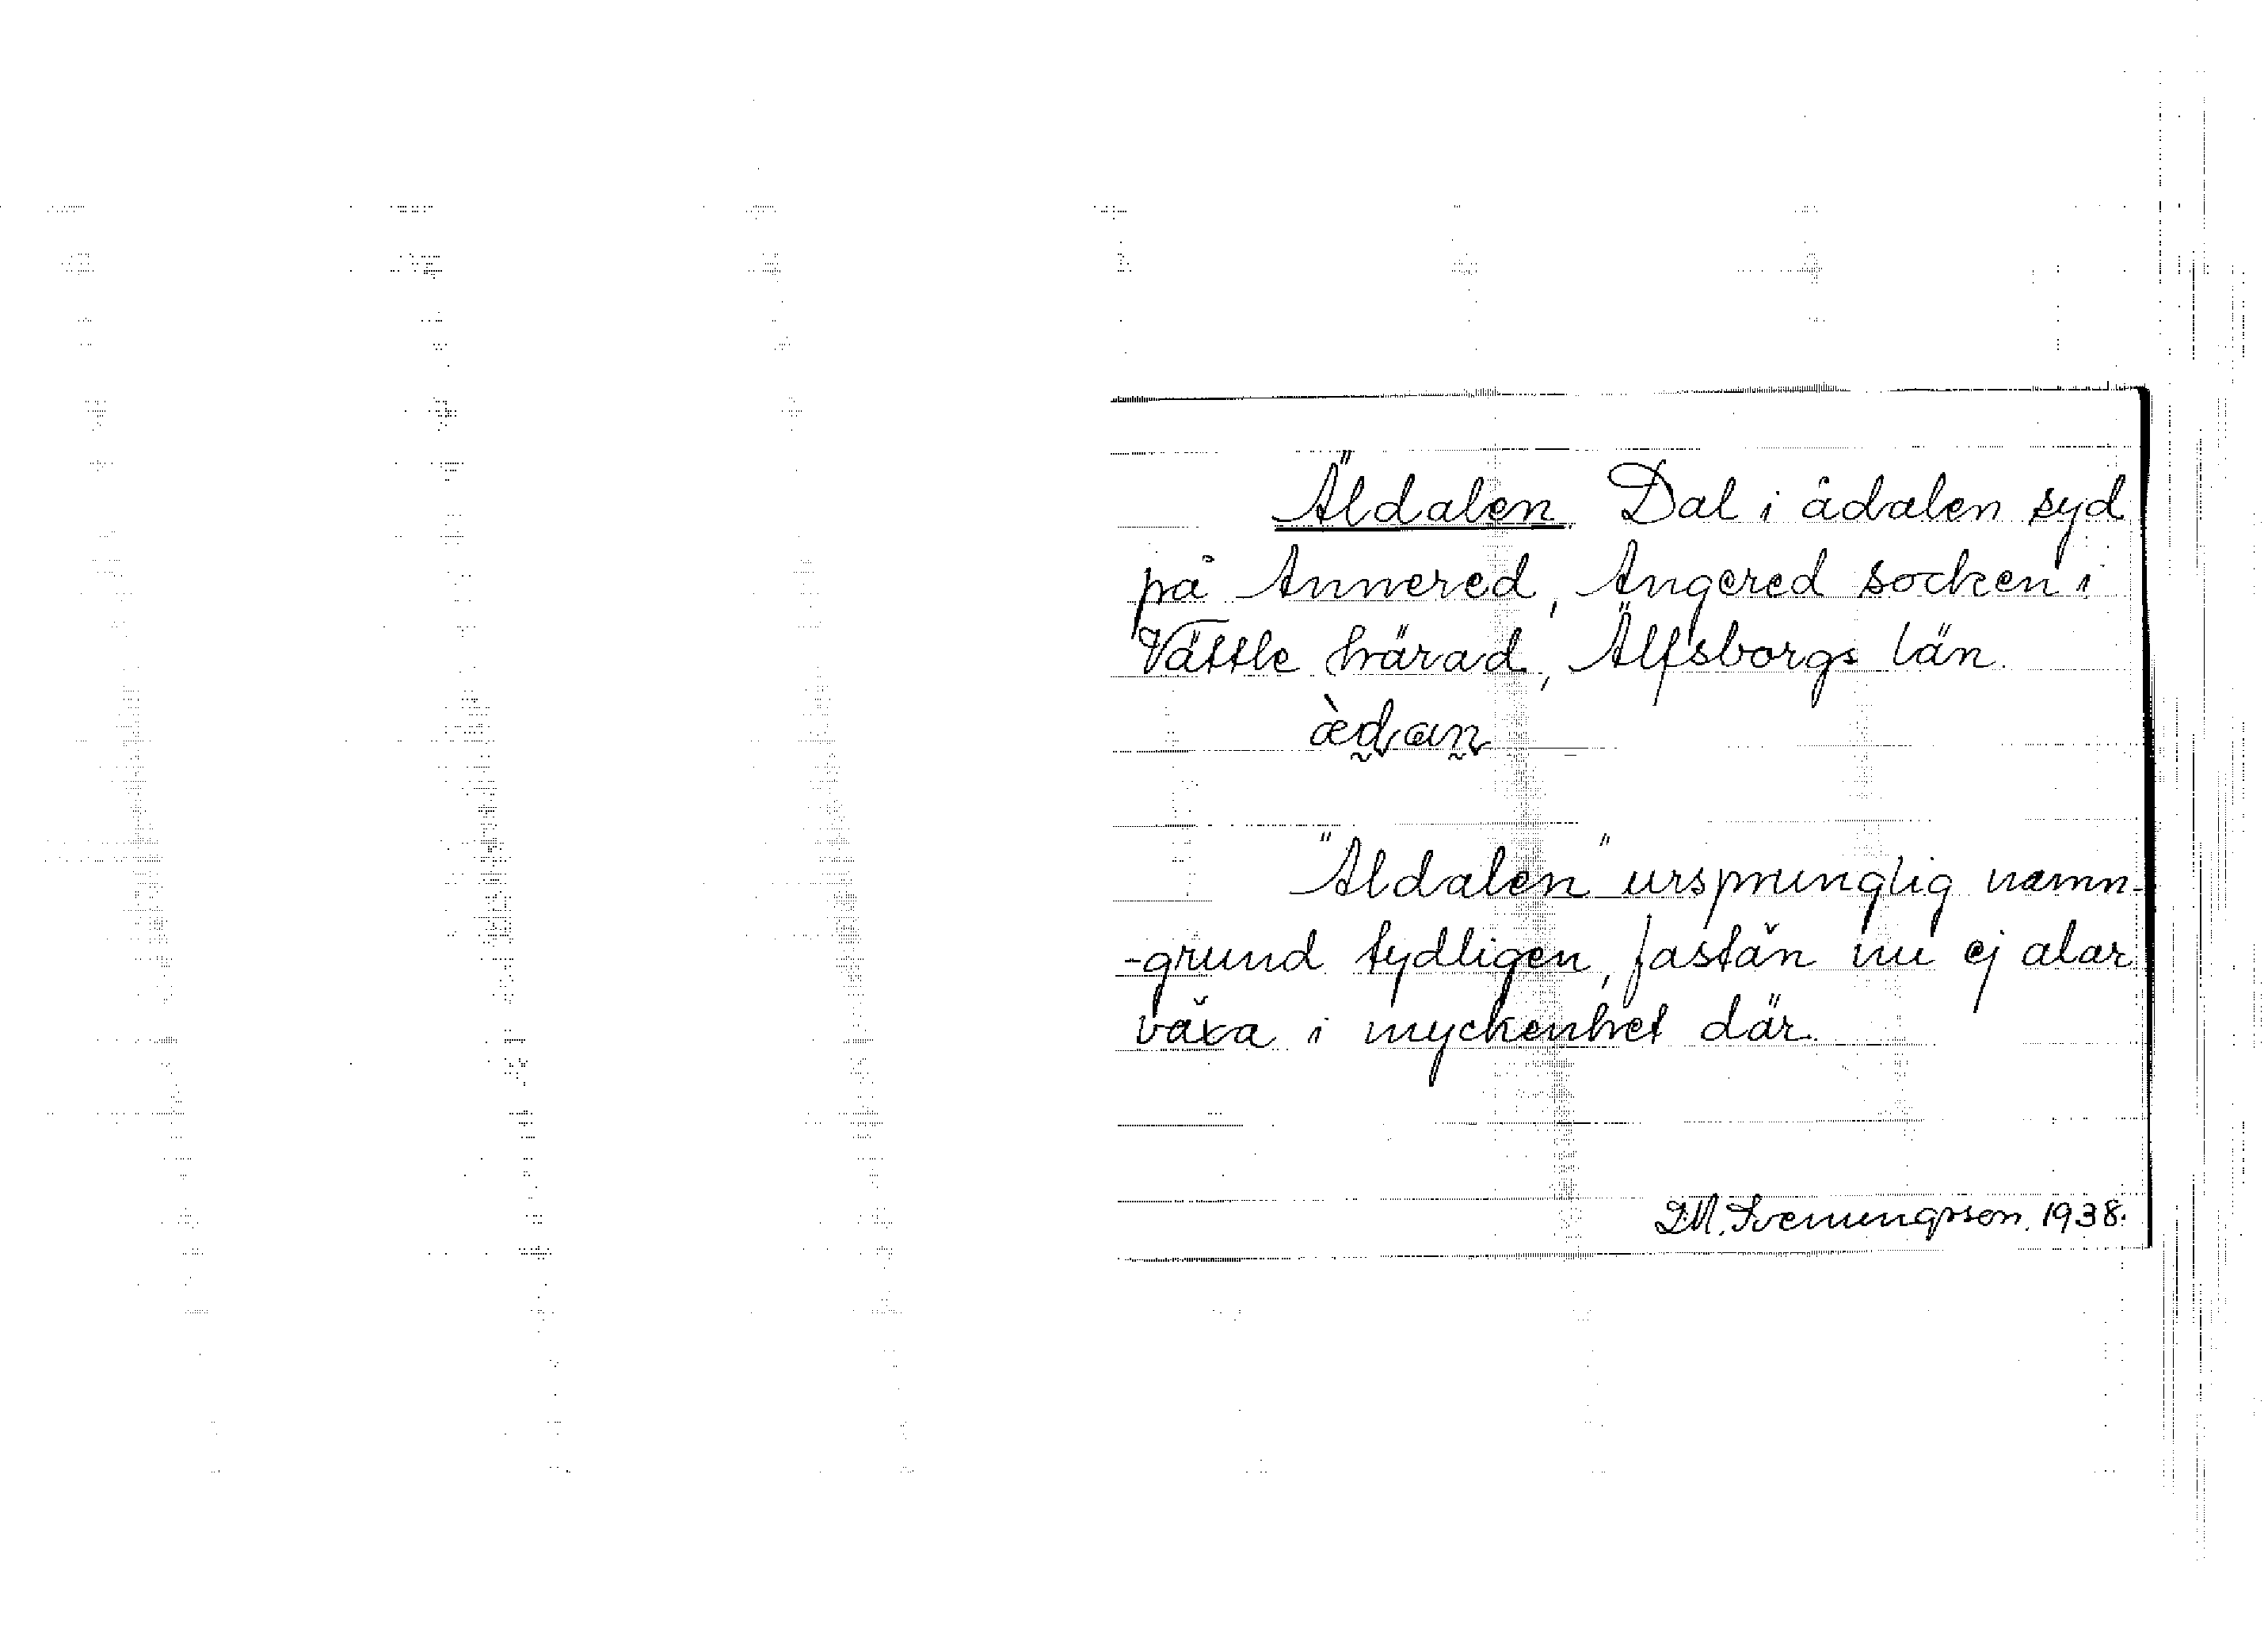 Äldalen. Dal i ådalen syd
på Annered, Angered socken i
Vättle härad, Älfsborgs län.
"Aldalen" ursprunglig namn-
-grund tydligen, fastän nu ej alar
växa i myckenhet där.
D.M. Svenungsson. 1938.